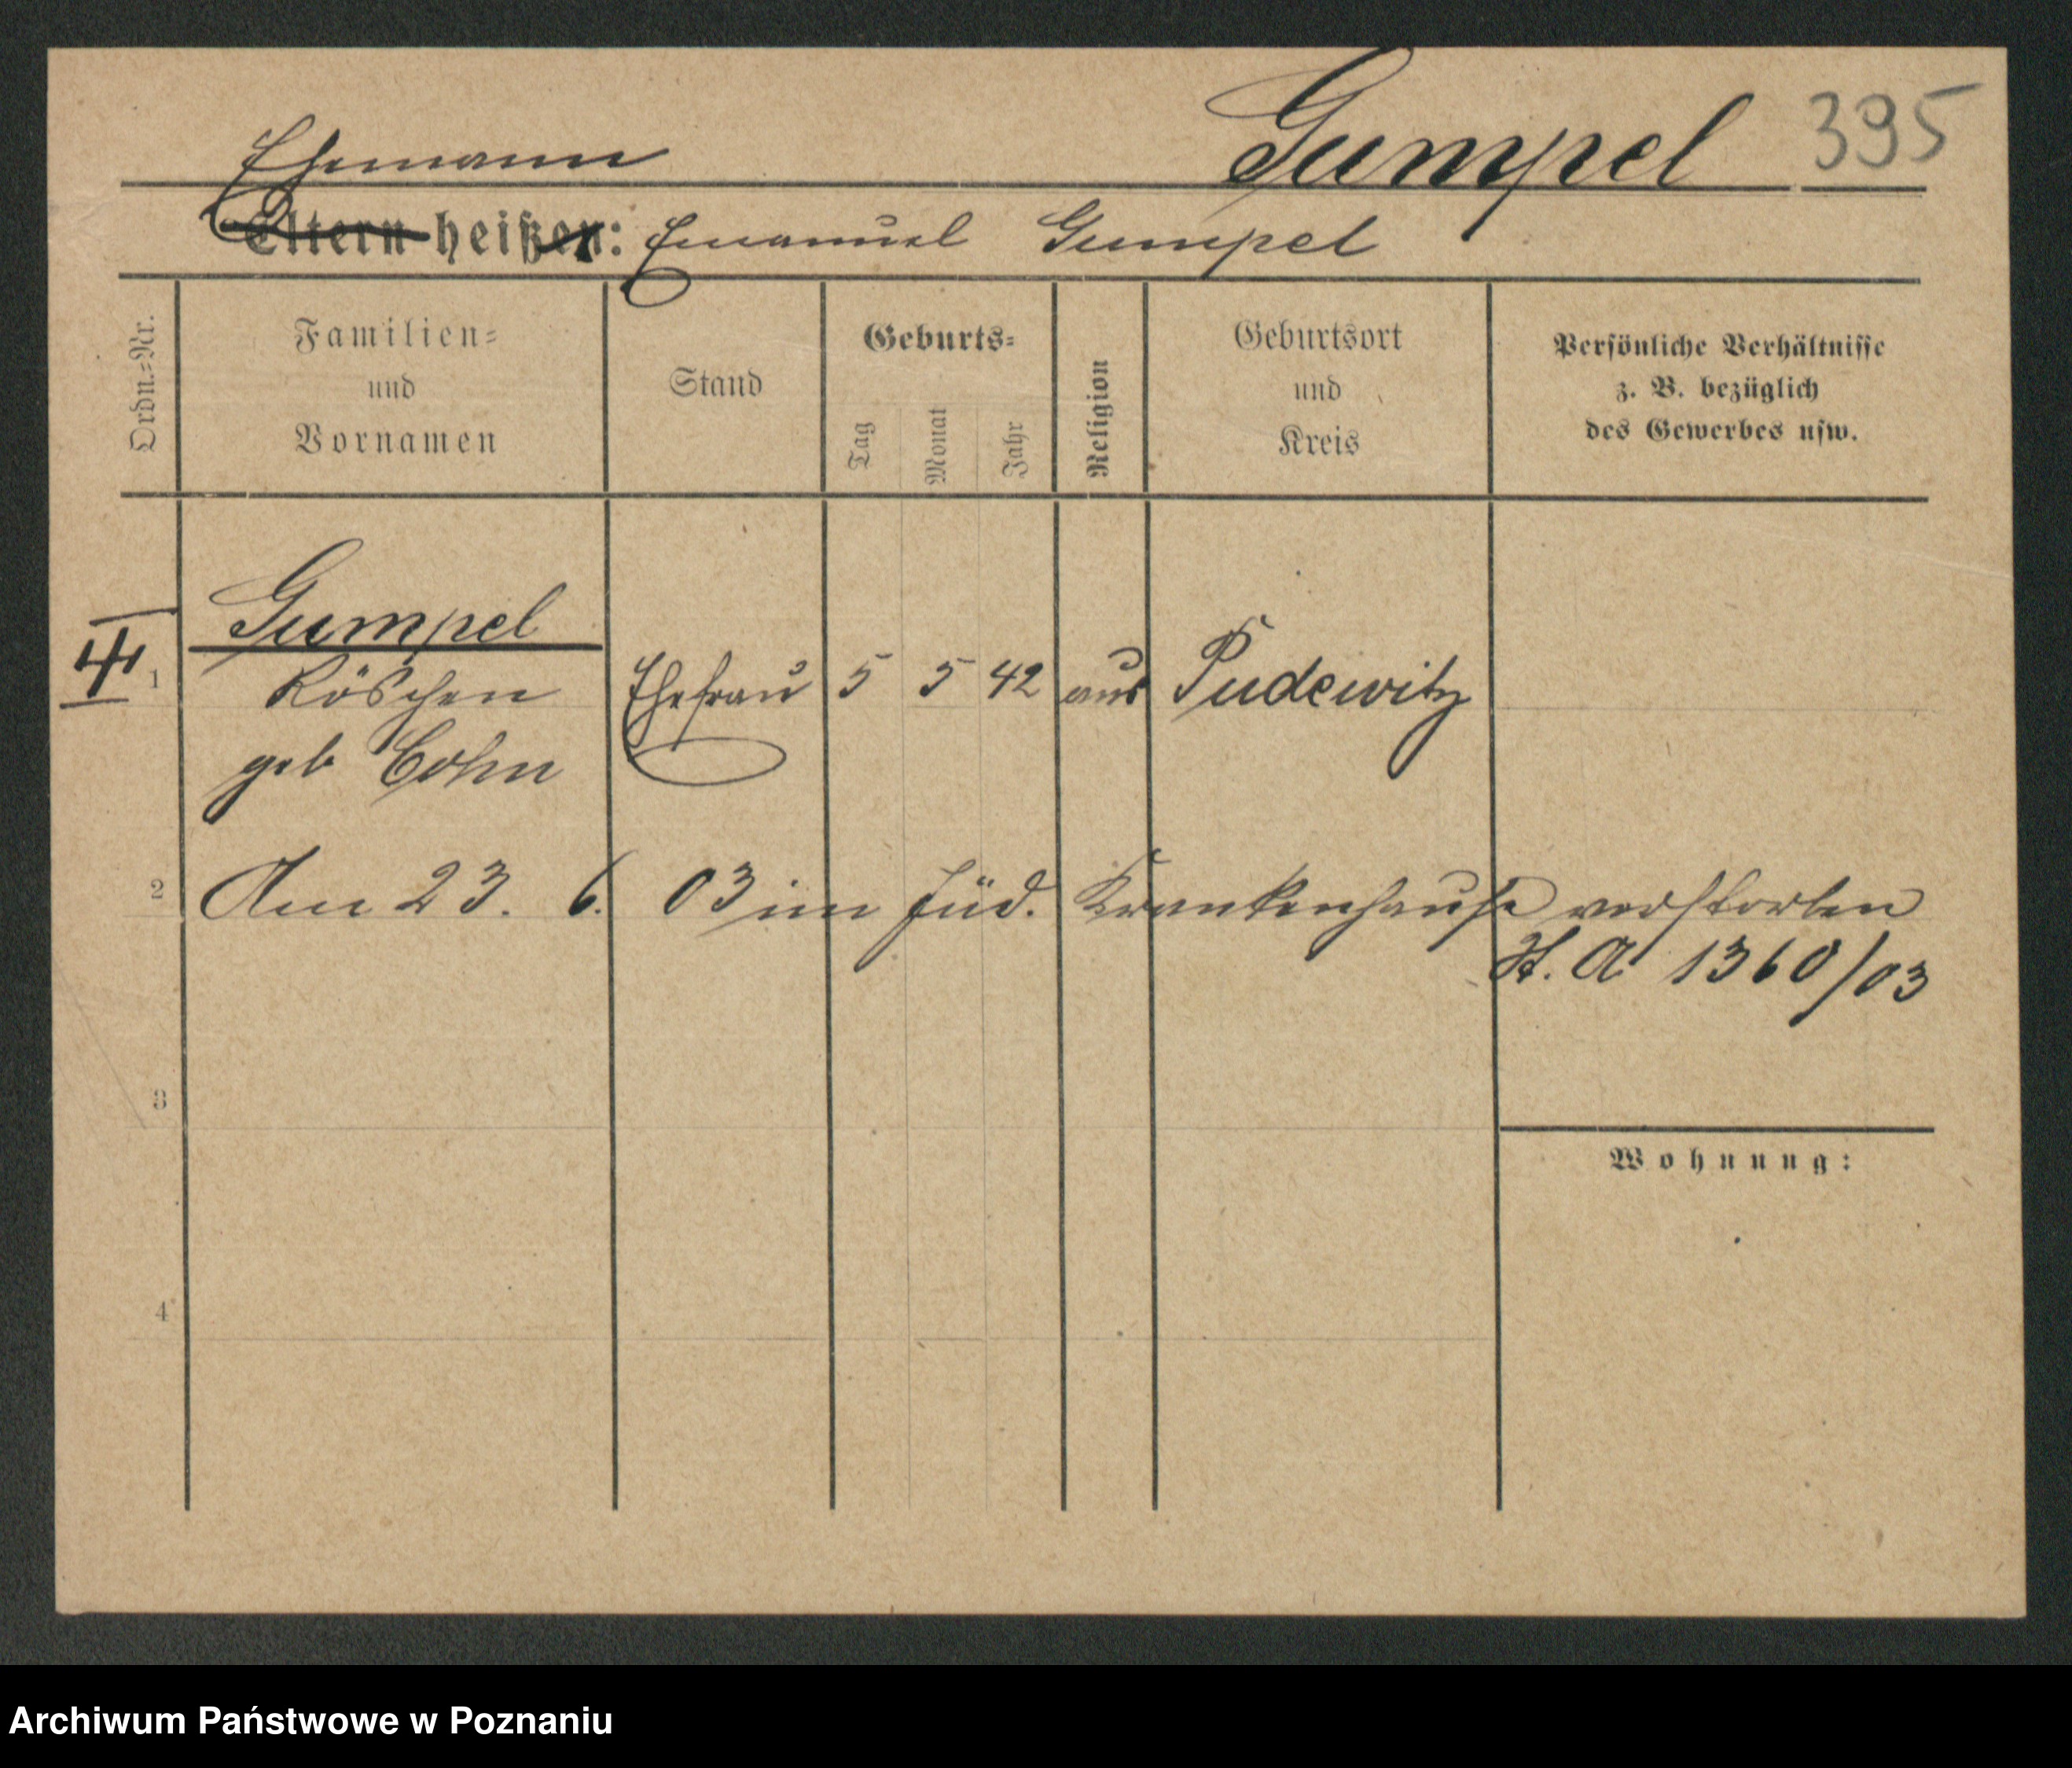 Gumpel 395
Ehemann
Eltern heißen: Emanuel Gumpel
Ordn.=Nr.
Familien= und Vornamen
Stand
Geburts=
Tag
Monat
Jahr
Religion
Geburtsort und Kreis
Persönliche Verhältnisse
z. B. bezüglich
des Gewerbes usw.
Gumpel
1 Röschen Ehefrau 5 5 42 aus Pudewitz
geb Cohn
2 Am 23. 6. 03 im jüd. Krankenhause verstorben
St. A 1360/03
3
Wohnung:
4
Archiwum Państwowe w Poznaniu